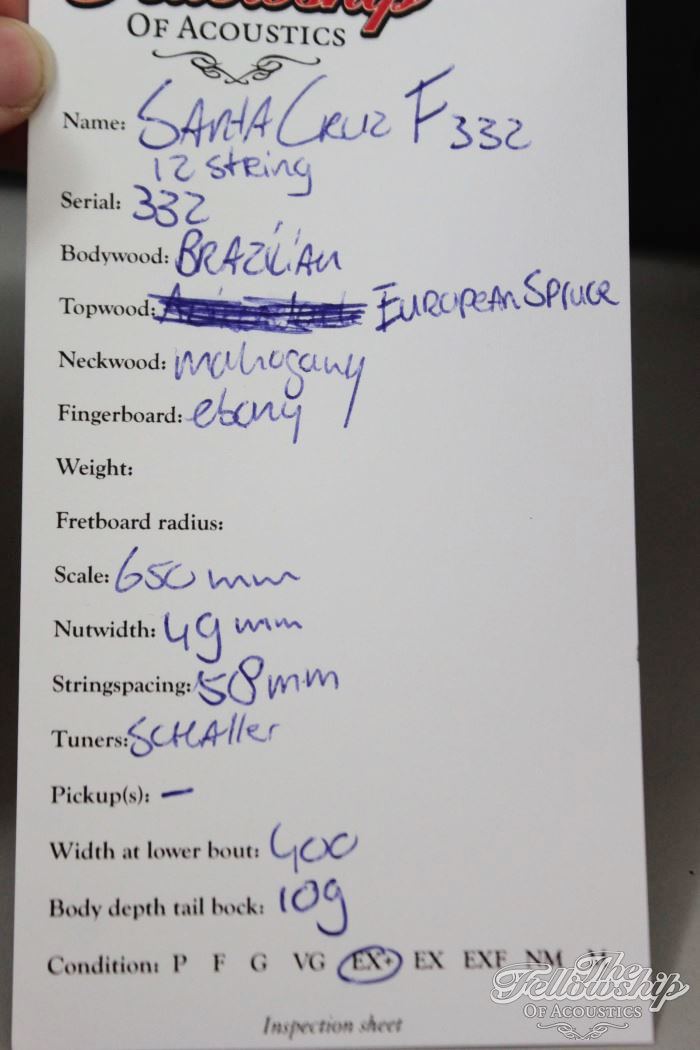 Fellowship
OF ACOUSTICS
Name: SANTA CRUZ F 332
12 string
Serial: 332
Bodywood: BRAZILIAN
Topwood: EUROPEAN SPRUCE
Neckwood: mahogany
Fingerboard: ebony
Weight:
Fretboard radius:
Scale: 650 mm
Nutwidth: 49 mm
Stringspacing: 58 mm
Tuners: SCHAller
Pickup(s): –
Width at lower bout: 400
Body depth tail bock: 109
Condition: P F G VG EX+ EX EXF NM M
Inspection sheet
The
Fellowship
OF ACOUSTICS